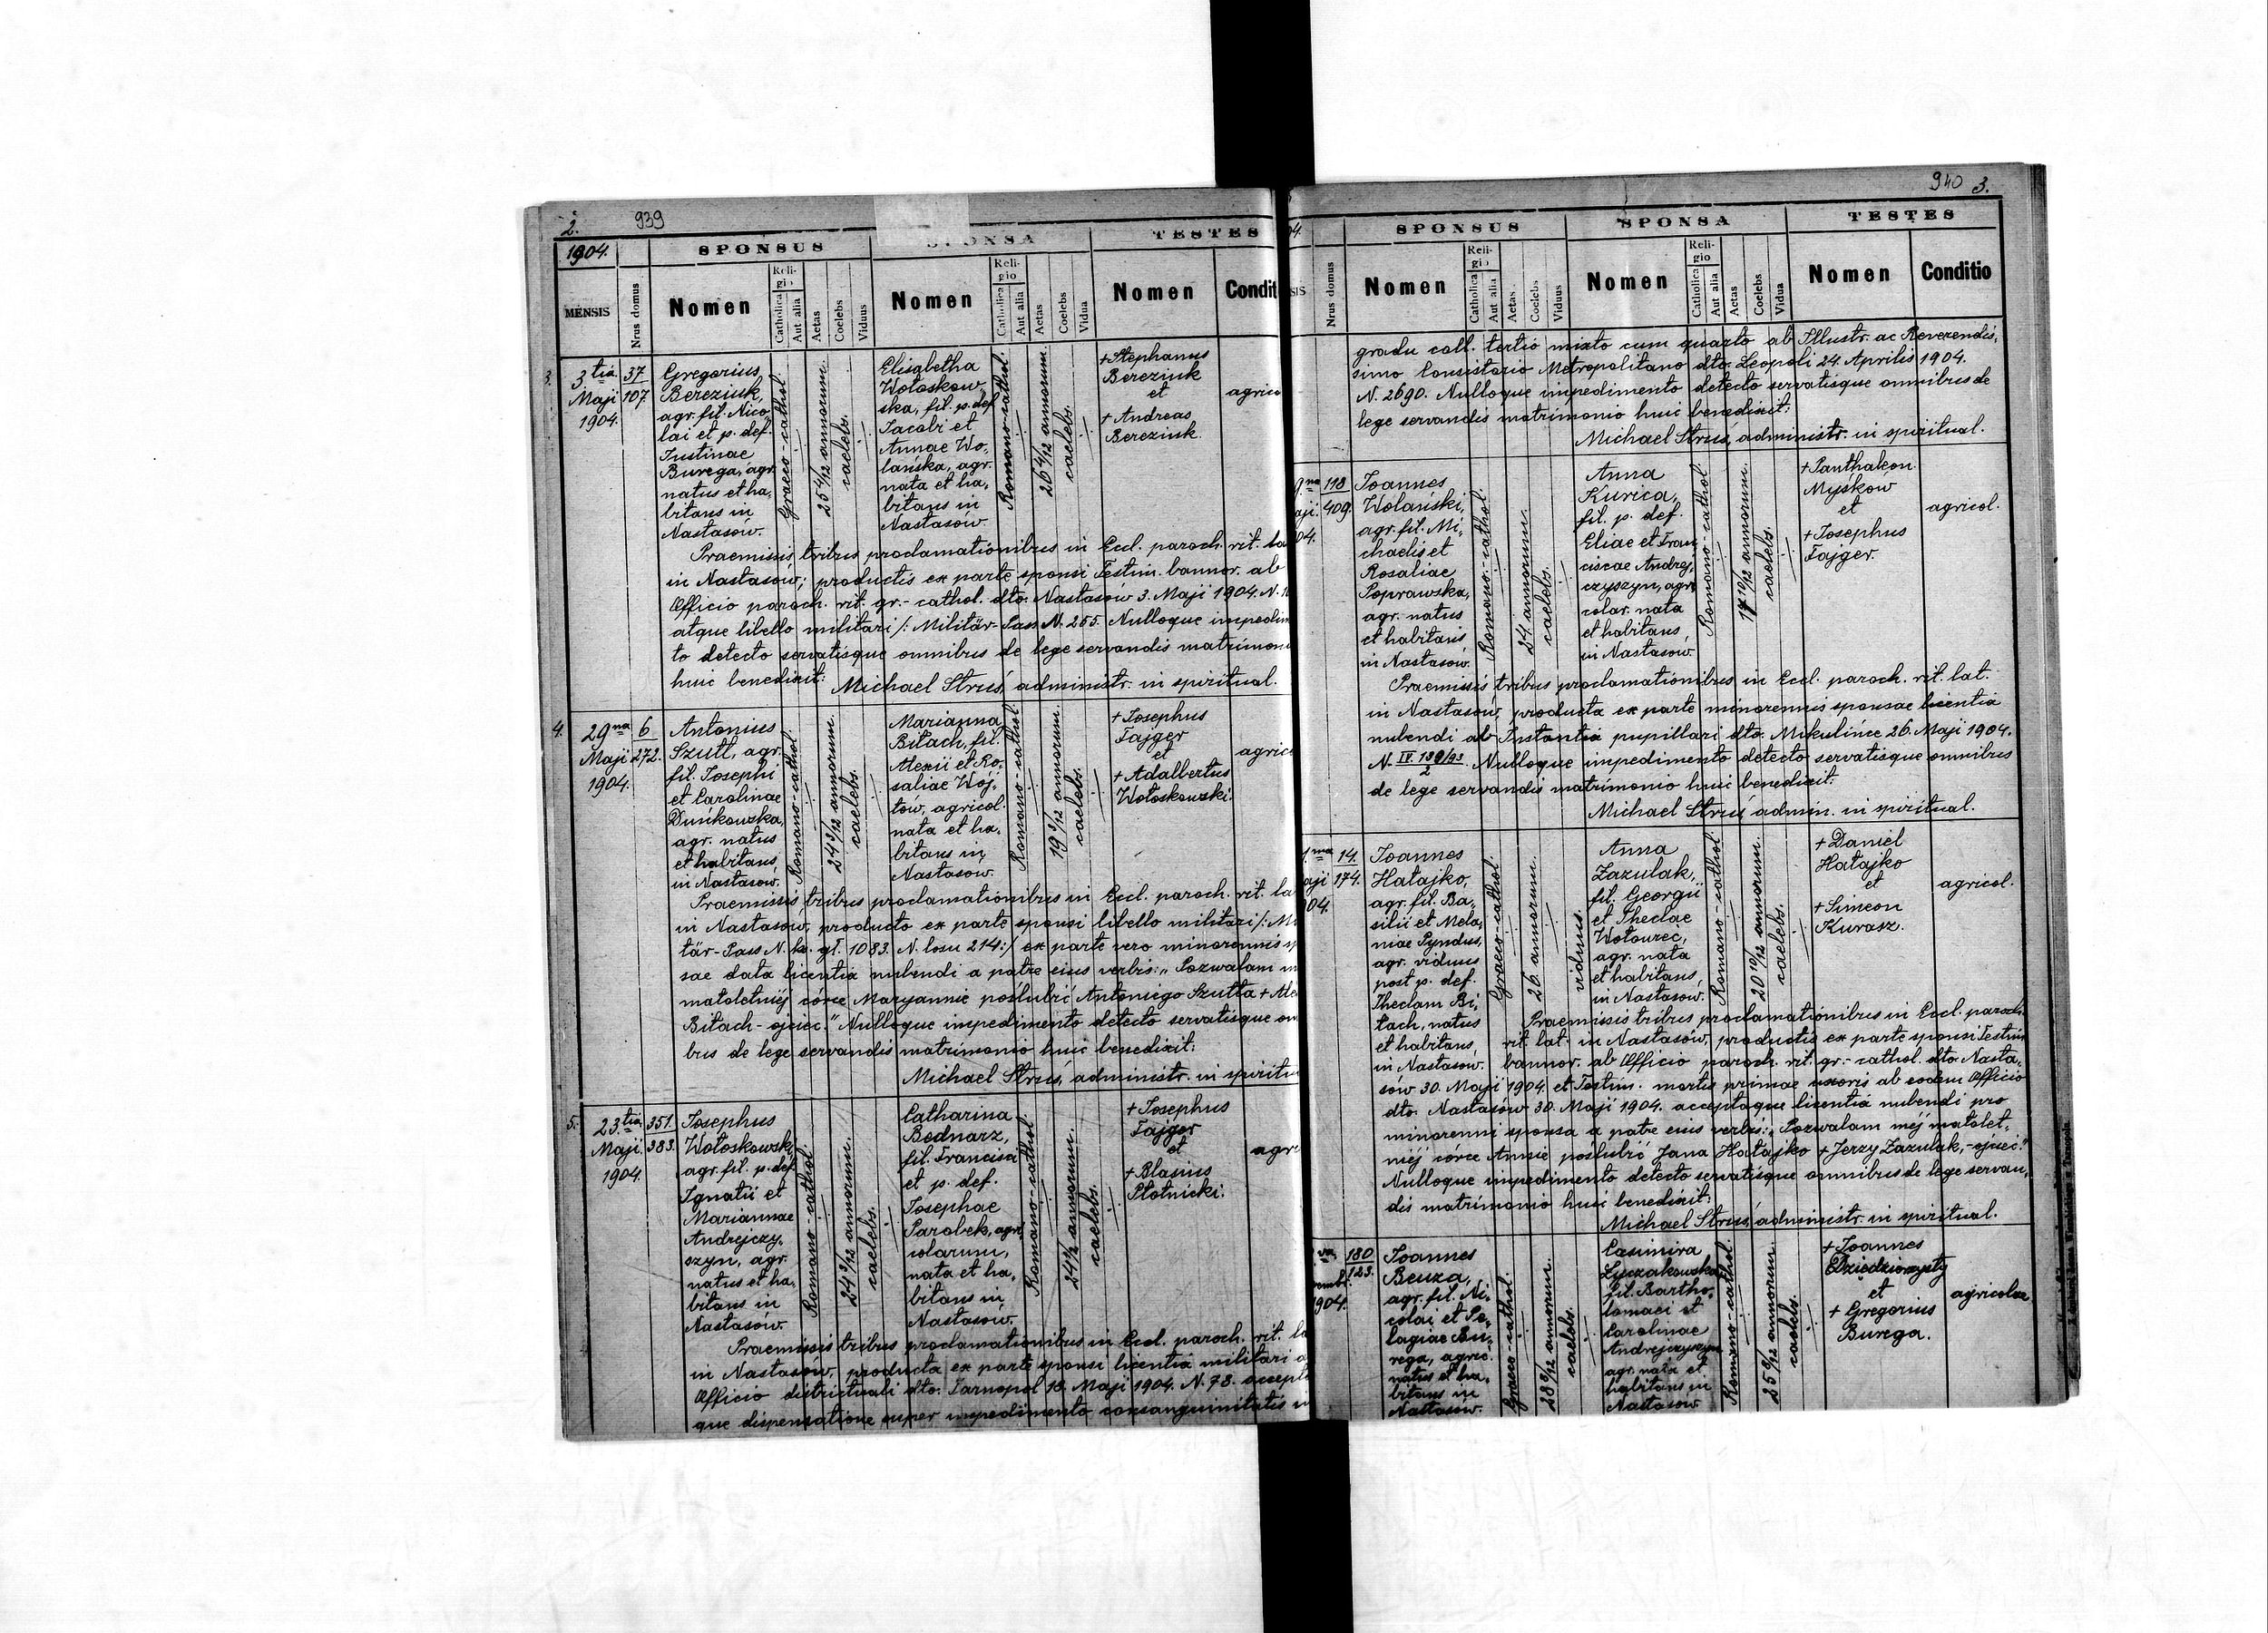 2. 939
1904. SPONSUS SPONSA TESTES
MENSIS Nrus domus Nomen Religio Catholica Aut alia Aetas Coelebs Viduus Nomen Religio Catholica Aut alia Aetas Coelebs Vidua Nomen Condit
3.
3tia
Maji
1904.
37
107.
Gregorius
Bereziuk,
agr. fil. Nico„
lai et p. def.
Justinae
Burega, agr.
natus et ha„
bitans in
Nastasów.
Graeco-cathol.
25 4/12 annorum.
caelebs.
Elisabetha
Wołoskow„
ska, fil. p. def.
Jacobi et
Annae Wo„
lańska, agr.
nata et ha„
bitans in
Nastasów.
Romano-cathol.
26 4/12 annorum.
caelebs.
+ Stephanus
Bereziuk
et
+ Andreas
Bereziuk.
agrico
Praemissis tribus proclamationibus in Eccl. paroch. rit. la
in Nastasów; productis ex parte sponsi Testim. bannor. ab
Officio paroch. rit. gr.-cathol. dto. Nastasów 3. Maji 1904. N.
atque libello militari /: Militär-Pass N. 255. Nulloque impedim
to detecto servatisque omnibus de lege servandis matrimoni
huic benedixit:
Michael Struś, administr. in spiritual.
4.
29na
Maji
1904.
6
272.
Antonius
Szutl, agr.
fil. Josephi
et Carolinae
Dunikowska,
agr. natus
et habitans
in Nastasów.
Romano-cathol.
24 3/12 annorum.
caelebs.
Marianna
Bitach, fil.
Alexii et Ro„
saliae Wój„
tów, agricol.
nata et ha„
bitans in
Nastasów.
Romano-cathol.
19 3/12 annorum.
caelebs.
+ Josephus
Fajger
et
+ Adalbertus
Wołoskowski.
agric
Praemissis tribus proclamationibus in Eccl. paroch. rit. la
in Nastasów, producto ex parte sponsi libello militari /: Mi
tär-Pass N. ks. gł. 1083. N. losu 214:/ ex parte vero minorennis sp
sae data licentia nubendi a patre eius verbis: „Pozwalam m
małoletniéj córce Maryannie poślubić Antoniego Szutla + Ale
Bitach - ojciec." Nulloque impedimento detecto servatisque om
bus de lege servandis matrimonio huic benedixit:
Michael Struś, administr. in spiritu
5.
23tia
Maji
1904.
351.
383.
Josephus
Wołoskowski,
agr. fil. p. def.
Ignatii et
Mariannae
Andrejczy„
szyn, agr.
natus et ha„
bitans in
Nastasów.
Romano-cathol.
24 3/12 annorum.
caelebs.
Catharina
Bednarz,
fil. Francisci
et p. def.
Josephae
Parobek, agri
colarum,
nata et ha„
bitans in
Nastasów.
Romano-cathol.
annorum.
caelebs.
+ Josephus
Fajger
et
+ Blasius
Słotnicki.
agri
Praemissis tribus proclamationibus in Eccl. paroch. rit. la
in Nastasów, producta ex parte sponsi licentia militari a
Officio districtuali dto. Tarnopol 18. Maji 1904. N. 78. accepta
que dispensatione super impedimento consanguinitatis in
940 3.
04. SPONSUS SPONSA TESTES
SIS Nrus domus Nomen Religio Catholica Aut alia Aetas Coelebs Viduus Nomen Religio Catholica Aut alia Aetas Coelebs Vidua Nomen Conditio
gradu coll. tertio mixto cum quarto ab Illustr. ac Reverendis„
simo Consistorio Metropolitano dto. Leopoli 24. Aprilis 1904.
N. 2690. Nulloque impedimento detecto servatisque omnibus de
lege servandis matrimonio huic benedixit:
Michael Struś, administr. in spiritual.
9na
aji
04.
118
409.
Joannes
Wolański,
agr. fil. Mi„
chaelis et
Rosaliae
Poprawska,
agr. natus
et habitans
in Nastasów.
Romano-cathol.
24. annorum.
caelebs.
Anna
Kurica,
fil. p. def.
Eliae et Fran
ciscae Andrej„
czyszyn, agri
colar. nata
et habitans,
in Nastasów.
Romano-cathol.
17 10/12 annorum.
caelebs.
+ Panthaleon
Myśkow
et
+ Josephus
Fajger.
agricol.
Praemissis tribus proclamationibus in Eccl. paroch. rit. lat.
in Nastasów, producta ex parte minorennis sponsae licentia
nubendi ab Instantia pupillari dto. Mikulińce 26. Maji 1904.
N. IV. 139/93 2 Nulloque impedimento detecto servatisque omnibus
de lege servandis matrimonio huic benedixit:
Michael Struś, admin. in spiritual.
1ma
aji
04.
14.
174.
Joannes
Hatajko,
agr. fil. Ba„
silii et Mela„
niae Pyndus,
agr. viduus
post p. def.
Theclam Bi„
tach, natus
et habitans
in Nastasów.
Graeco-cathol.
26. annorum.
viduus.
Anna
Zazulak,
fil. Georgii
et Theclae
Wołowiec,
agr. nata
et habitans,
in Nastasów.
Romano-cathol.
20 10/12 annorum.
caelebs.
+ Daniel
Hatajko
et
+ Simeon
Kurasz.
agricol.
Praemissis tribus proclamationibus in Eccl. paroch.
rit. lat. in Nastasów, productis ex parte sponsi Testim
bannor. ab Officio paroch. rit. gr.-cathol. dto. Nasta„
sów 30. Maji 1904. et Testim. mortis primae uxoris ab eodem Officio
dto. Nastasów 30. Maji 1904. acceptaque licentia nubendi pro
minorenni sponsa a patre eius verbis: „Pozwalam méj małolet„
niéj córce Annie poślubić Jana Hatajko + Jerzy Zazulak, - ojciec."
Nulloque impedimento detecto servatisque omnibus de lege servan„
dis matrimonio huic benedixit:
Michael Struś, administr. in spiritual.
vembr.
1904.
180
123.
Joannes
Beuza,
agr. fil. Ni„
colai et Pe„
lagiae Bu„
rega, agric.
natus et ha„
bitans in
Nastasów.
Graeco-cathol.
annorum.
caelebs.
Casimira
Łyczakowska
fil. Bartho„
lomaei et
Carolinae
Andrejczyszyn
agr. nata et
habitans in
Nastasów
Romano-cathol.
25 8/12 annorum.
caelebs.
+ Joannes
Dziedzioczysty
et
+ Gregorius
Burega.
agricolae